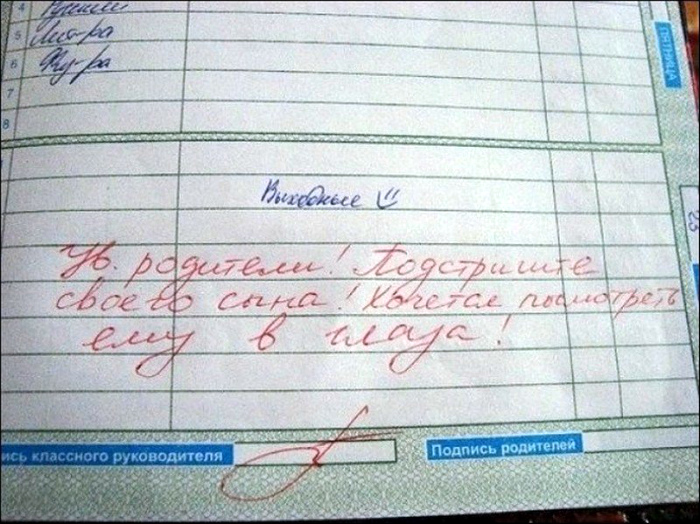 4
5 Лит-ра
6 Физ-ра
7
8
ПЯТНИЦА
Выходные
23
Ув. родители! Подстригите
своего сына! Хочется посмотреть
ему в глаза!
ись классного руководителя
Подпись родителей